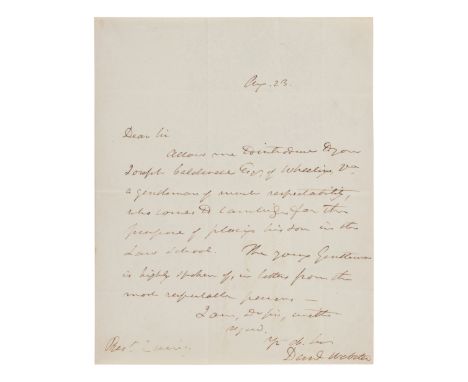 Aug. 23.
Dear Sir
Allow me to introduce to you
Joseph Caldwell Esqr of Wheeling, Va
a gentleman of much respectability,
who comes to Cambridge for the
purpose of placing his son in the
Law School. The young Gentleman
is highly spoken of, in letters from the
most respectable persons —
I am, Dr Sir, with
regard,
Yr ob. Serv
Danl Webster
Prest Quincy